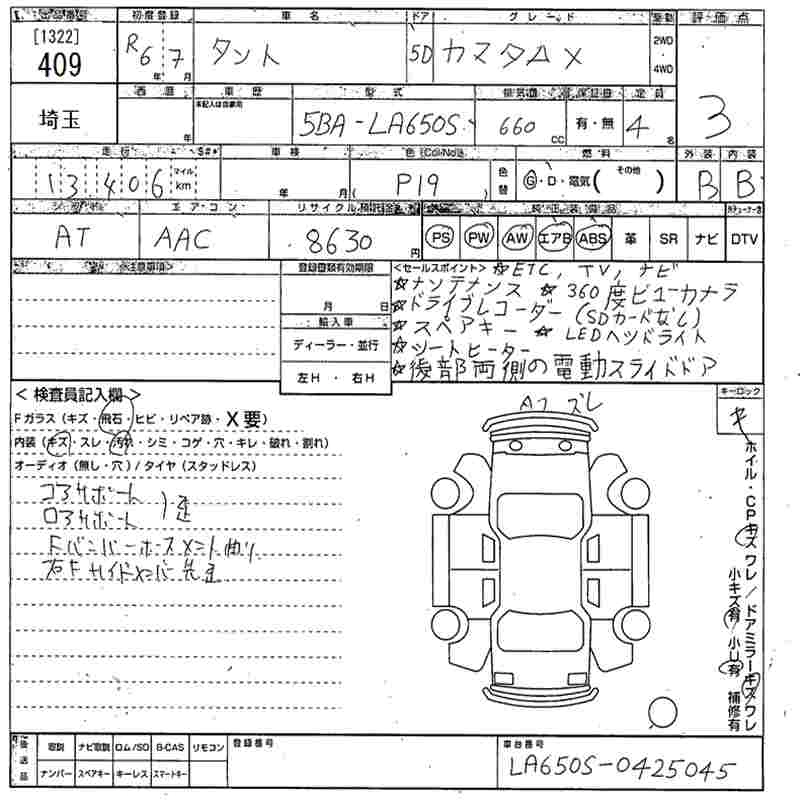 出品番号 初度登録 車名 ドア グレード 駆動 評価点
[1322] 409 R6年 7月 タント 5D カスタムX 2WD・4WD 3
埼玉 年 車歴 本記入は自家用 型式 排気量 保証書 定員
5BA-LA650S 660cc 有・無 4名
走行 車検 色(Col・No) 燃料 その他 外装 内装
13406 マイル km 年 月 P19 色替 G・D・電気( ) B B
シフト エアコン リサイクル預託金 純正装備品
AT AAC 8630円 PS PW AW エアB ABS 革 SR ナビ DTV
<注意事項> 登録書類有効期限 <セールスポイント> ☆ETC, TV, ナビ
☆メンテナンス ☆360度ビューカメラ
月 日 ☆ドライブレコーダー(SDカードなし)
輸入車 ☆スペアキー ☆LEDヘッドライト
ディーラー・並行 ☆シートヒーター
左H・右H ☆後部両側の電動スライドドア
<検査員記入欄> キーロック
Fガラス(キズ・飛石・ヒビ・リペア跡・X要)
内装(キズ・スレ・汚れ・シミ・コゲ・穴・キレ・破れ・割れ)
オーディオ(無し・穴)/タイヤ(スタッドレス)
コアサポート
ロアサポート
Fバンパーホースメント曲り
右Fサイドメンバー先
ズレ
ホイル・CPキズワレ/ドアミラーキズ/ワレ
小キズ有 小U有 補修有
後送品 取説 ナビ取説 ロム/SD B-CAS リモコン 登録番号 車台番号
ナンバー スペアキー キーレス スマートキー LA650S-0425045